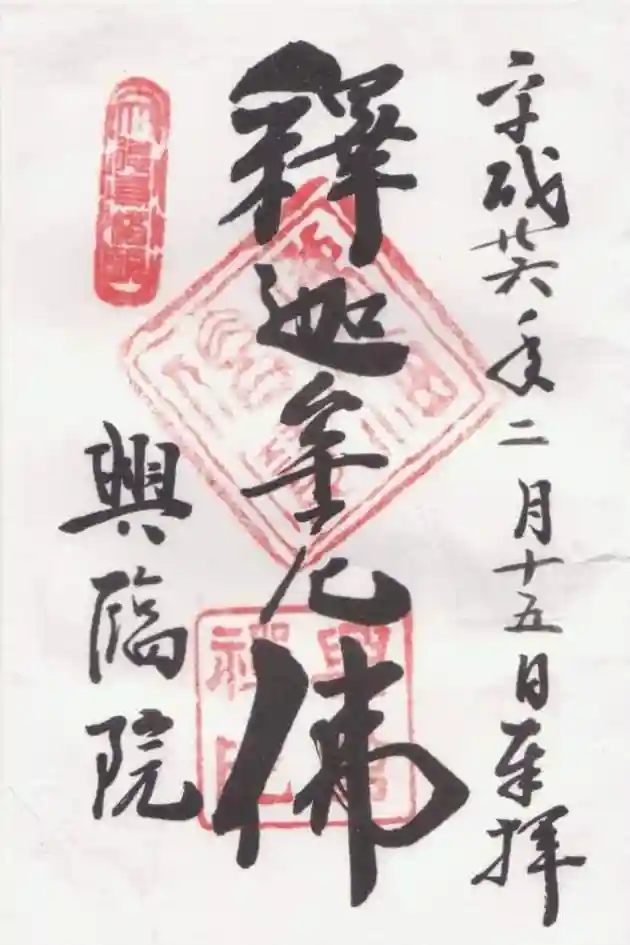 平成廿六年二月十五日奉拝
釋迦牟尼佛
興臨院